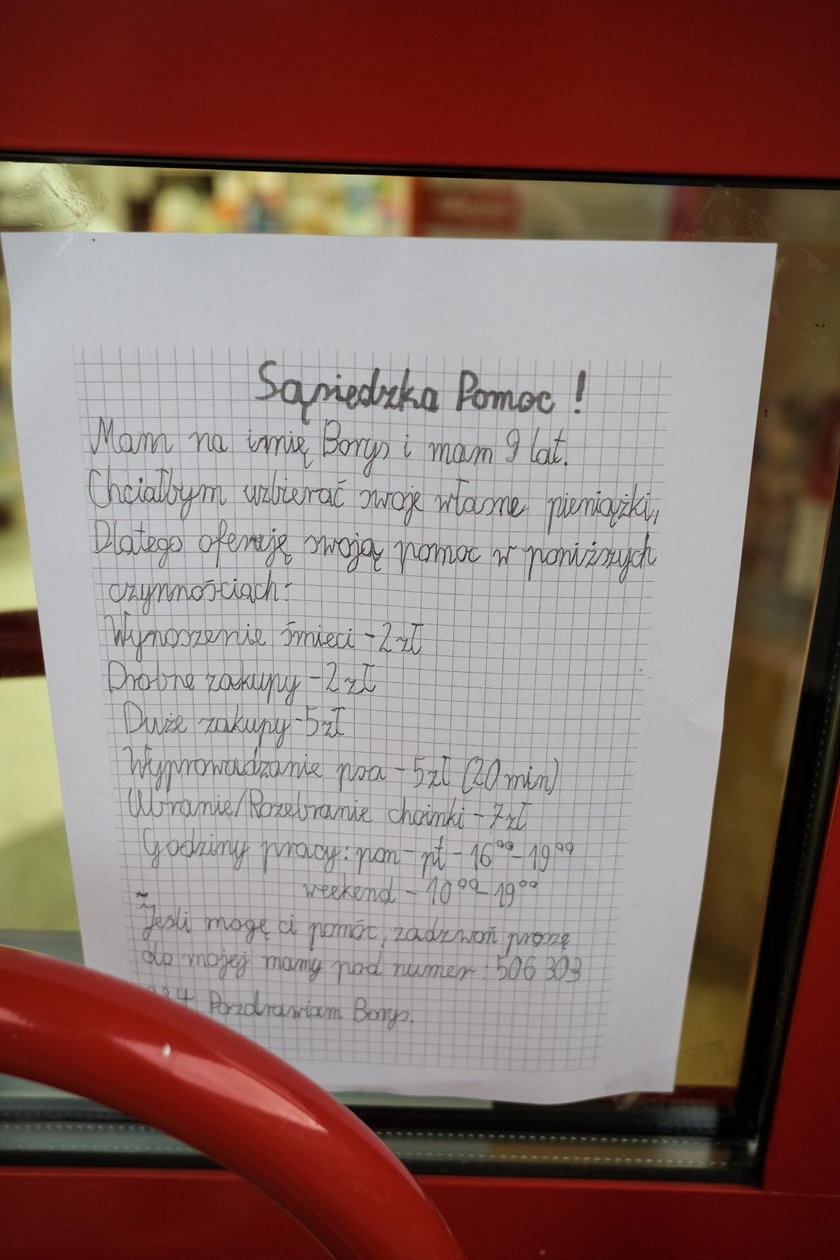 Sąsiedzka Pomoc!
Mam na imię Borys i mam 9 lat.
Chciałbym uzbierać swoje własne pieniążki,
Dlatego oferuję swoją pomoc w poniższych
czynnościach:
Wynoszenie śmieci - 2 zł
Drobne zakupy - 2 zł
Duże zakupy - 5 zł
Wyprowadzanie psa - 5 zł (20 min)
Ubranie/Rozebranie choinki - 7 zł
Godziny pracy: pon - pt - 16⁰⁰ - 19⁰⁰
weekend - 10⁰⁰ - 19⁰⁰
Jeśli mogę ci pomóc, zadzwoń proszę
do mojej mamy pod numer: 506 303
Pozdrawiam Borys.